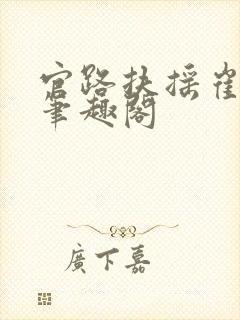 官路扶摇崔
笔趣阁
廣下嘉